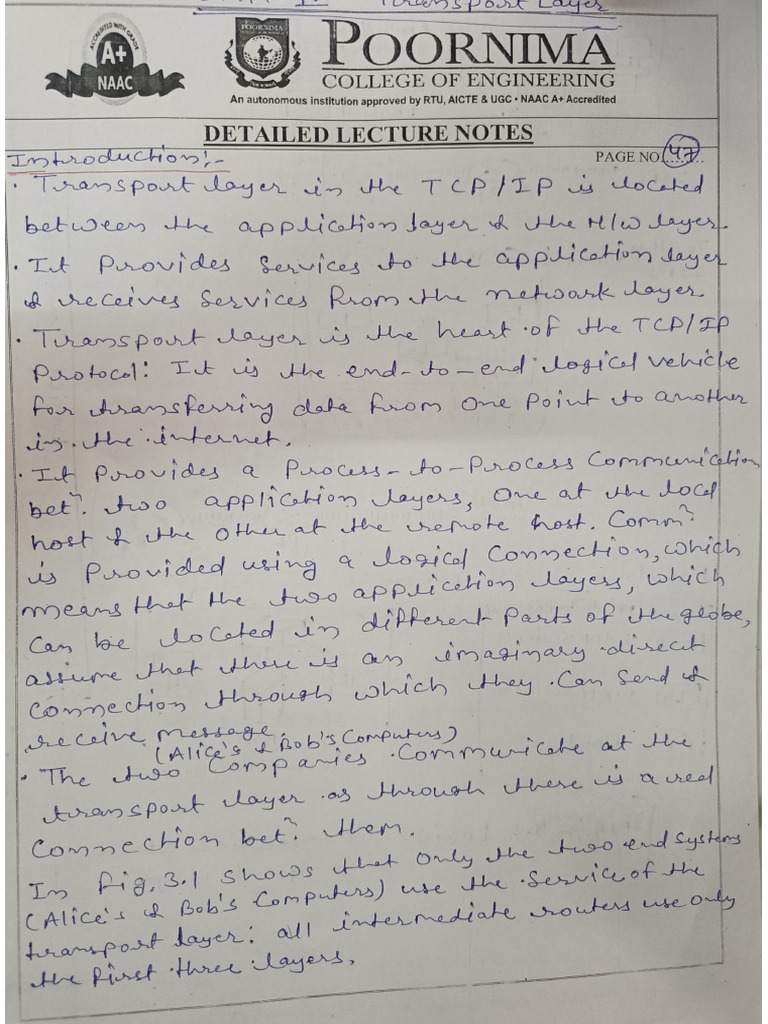 Transport Layer
ACCREDITED WITH GRADE
A+
NAAC
POORNIMA
POORNIMA
COLLEGE OF ENGINEERING
An autonomous institution approved by RTU, AICTE & UGC • NAAC A+ Accredited
DETAILED LECTURE NOTES
PAGE NO. 47
Introduction:-
• Transport layer in the TCP/IP is located
between the application layer & the N/W layer.
• It Provides Services to the application layer
& receives Services from the network layer.
• Transport layer is the heart of the TCP/IP
Protocol: It is the end-to-end logical vehicle
for transferring data from one Point to another
in the internet.
• It Provides a Process-to-Process Communication
betn. two application layers, one at the local
host & the other at the remote host. Commn.
is Provided using a logical Connection, which
means that the two application layers, which
Can be located in different Parts of the globe,
assume that there is an imaginary direct
Connection through which they Can Send &
receive message.
(Alice's & Bob's Computers)
• The two Companies Communicate at the
transport layer as through there is a real
Connection betn. them.
In Fig. 3.1 shows that only the two end systems
(Alice's & Bob's Computers) use the Service of the
transport layer: all intermediate routers use only
the first three layers.